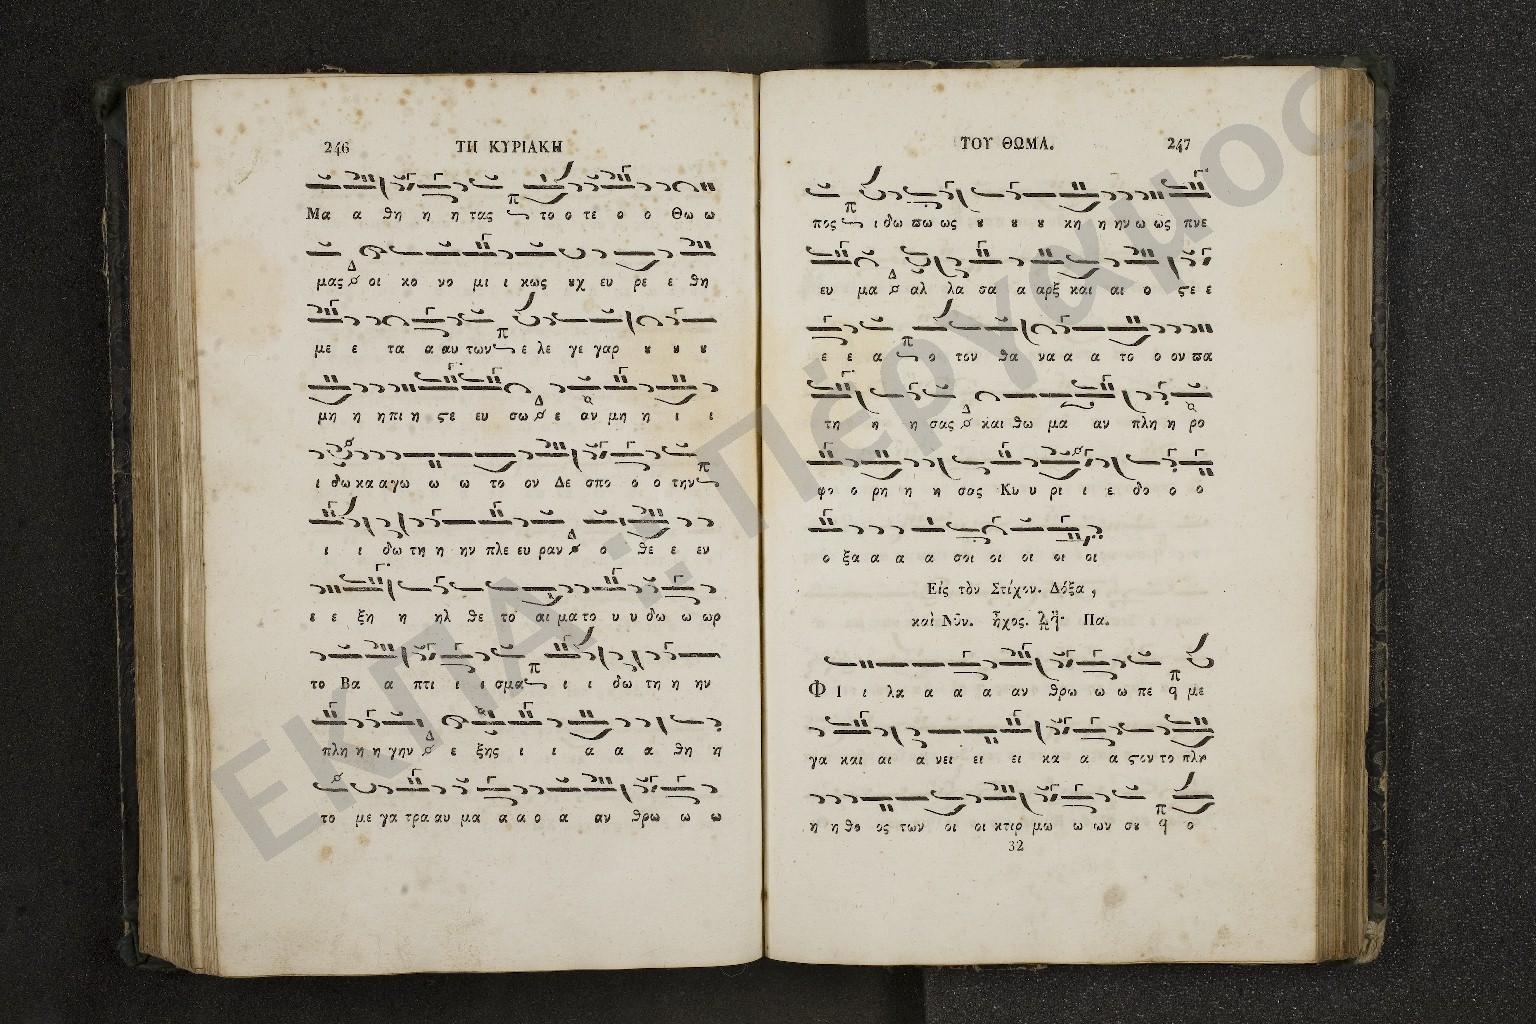 246 ΤΗ ΚΥΡΙΑΚΗ
Μα α θη η η τας το ο τε ο ο Θω ω
μας οι κο νο μι ι κως ȣχ ευ ρε ε θη
με ε τα α αυ των ε λε γε γαρ ȣ ȣ ȣ
μη η ηπι η ϛε ευ σω ε αν μη η ι ι
ι δω κα α γω ω ω το ον Δε σπο ο ο την
ι ι δω τη η ην πλε ευ ραν ο θε ε εν
ε ε ξη η ηλ θε το αι μα το υ υ δω ω ωρ
το Βα α πτι ι ι σμα ι ι δω τη η ην
πλη η η γην ε ξης ι ι α α α θη η
το με γα τρα αυ μα α α ο α αν θρω ω ω
ΤΟΥ ΘΩΜΑ. 247
πος ι δω ϖω ως ȣ ȣ ȣ κη η ην ω ως πνε
ευ μα αλ λα σα α αρξ και αι ο ϛε ε
ε ε α ο τον θα να α α το ο ον ϖα
τη η η σας και θω μα αν πλη η ρο
φο ο ρη η η σας Κυ υ ρι ι ε δο ο ο
ο ξα α α α σοι οι οι οι οι
Εἰς τὸν Στίχον. Δόξα,
καὶ Νῦν. ἦχος. Πα.
ΦΙ ι λα α α α αν θρω ω ω πε με
γα και αι α νει ει ει κα α α ϛον το πλη
η η θο ος των οι οι κτιρ μω ω ων σȣ ο
32
ΕΚΠΑ: Πέργαμος